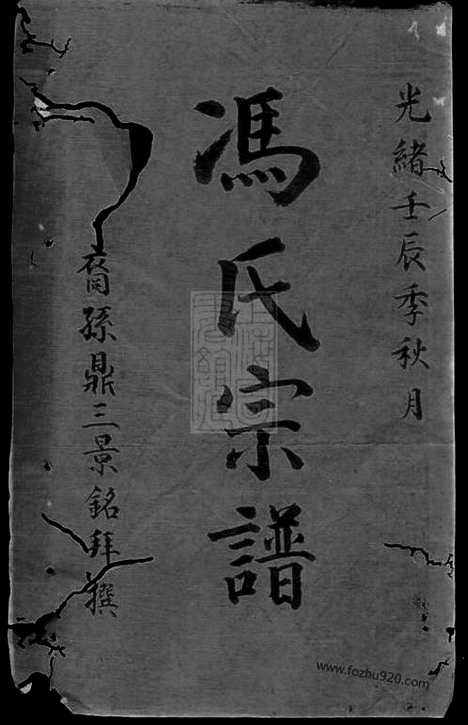 光緒壬辰季秋月
馮氏宗譜
裔孫鼎三景銘拜撰
www.fozhu920.com